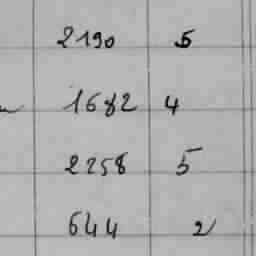 2190 5
1682 4
2258 5
644 2